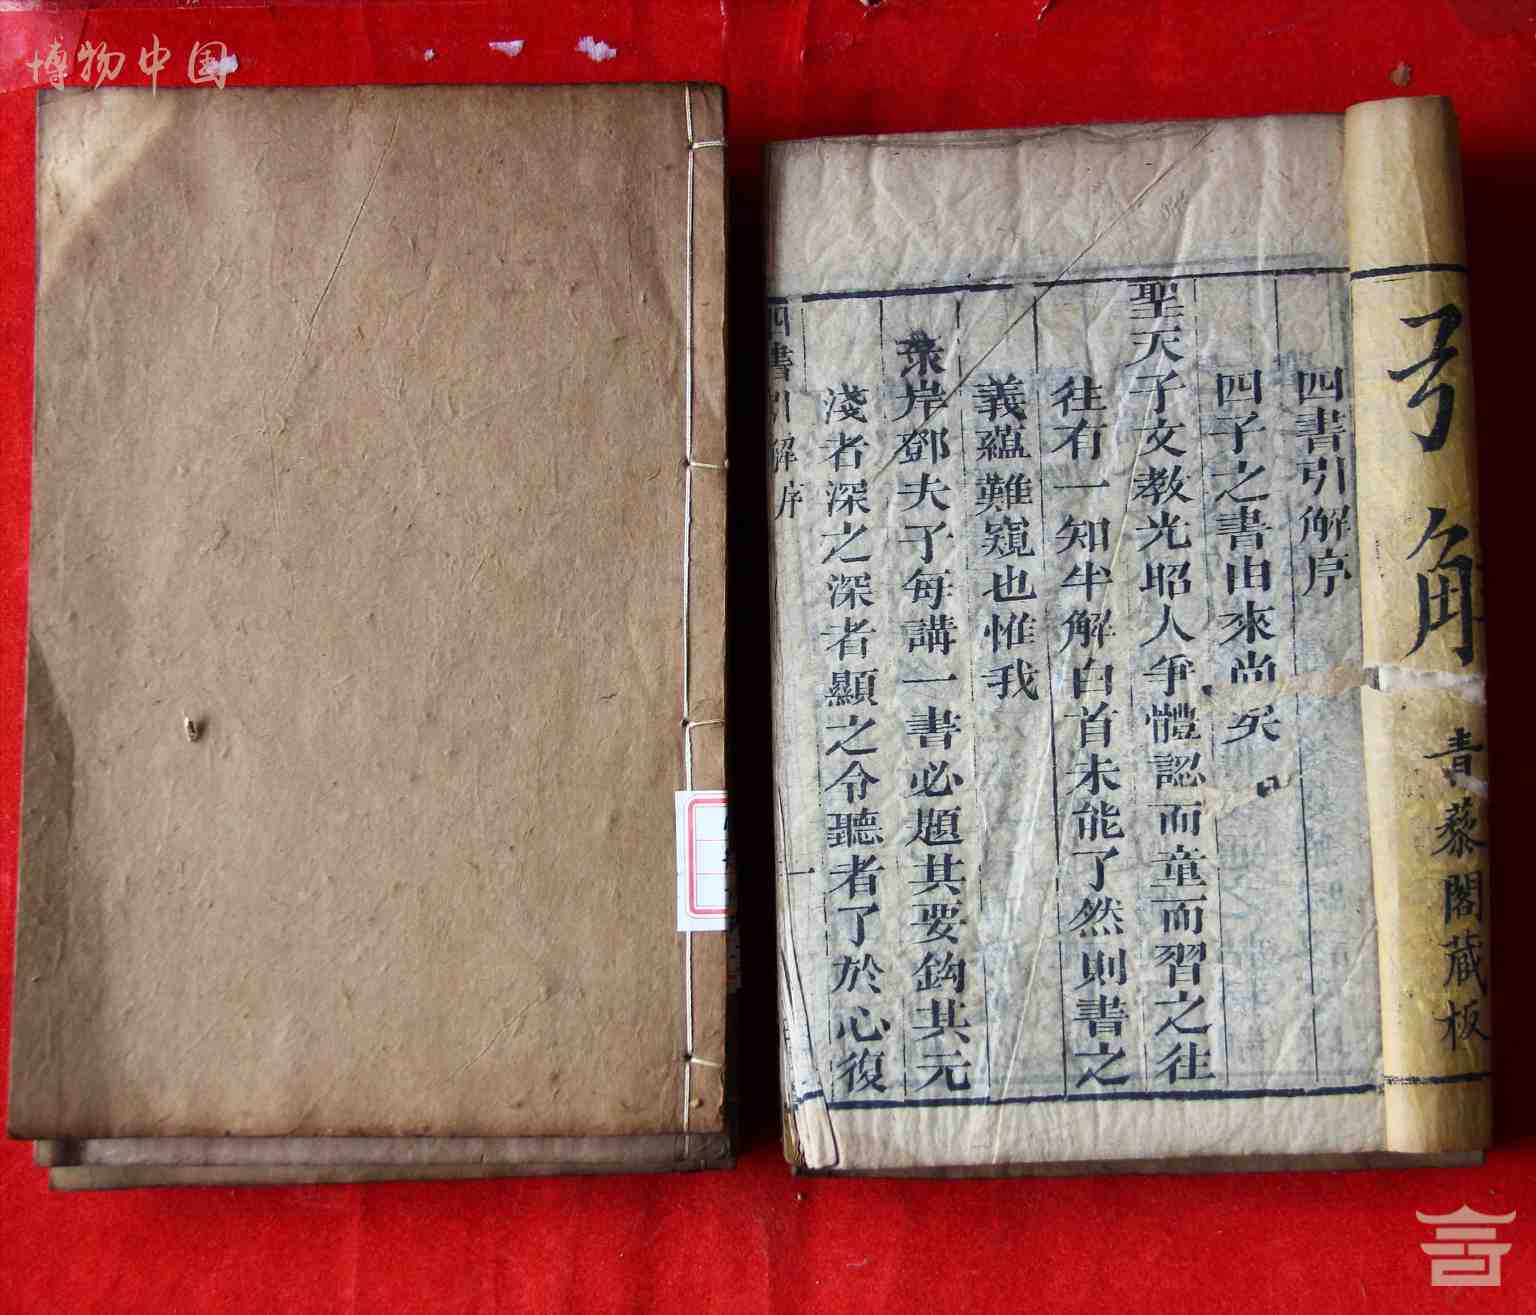 博物中国
引解
青藜閣藏板
四書引解序
四子之書由來尚矣
聖天子文教光昭人爭體認而童而習之往
往有一知半解白首未能了然則書之
義蘊難窺也惟我
岸鄧夫子每講一書必題其要鈎其元
淺者深之深者顯之令聽者了於心復
四書引解序
一